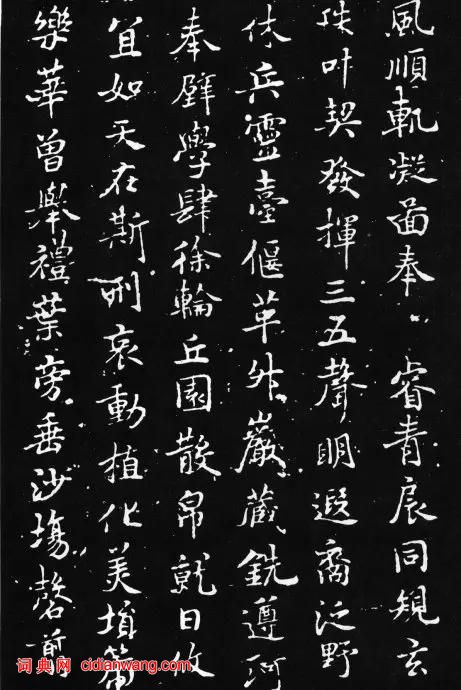 風順軌凝啚奉 睿青扆同規玄
珠叶契發揮三五聲明遐裔泛野
休兵靈臺偃革升巖藏銑遵河
奉璧學肆徐輪丘園散帛就日收
宜如天在斯刑哀動植化美塤篪
樂華曾舉禮葉旁垂沙塲罄翦
词典网 cidianwang.com